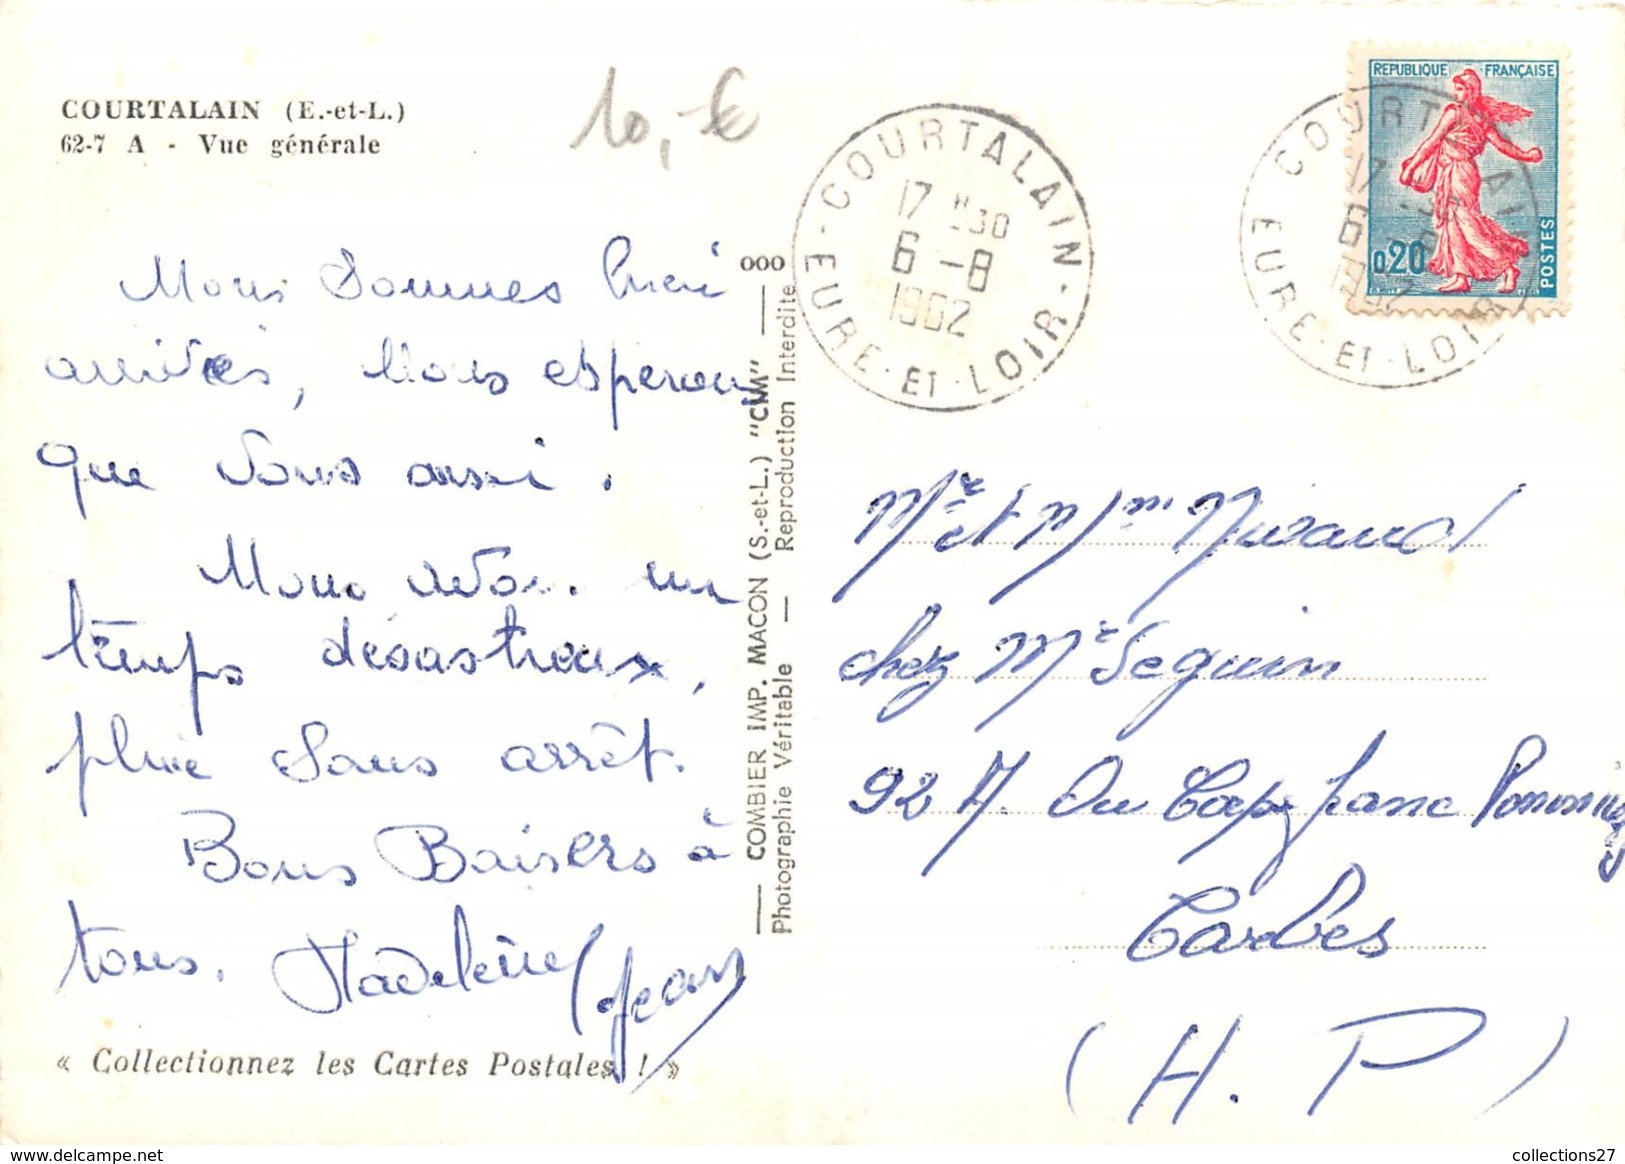 COURTALAIN (E.-et-L.)
62-7 A - Vue générale
10,-€
Nous Sommes bien
arrivés, Nous esperons
que Vous aussi.
Nous avons un
temps désastreux,
pluie Sans arrêt.
Bons Baisers à
tous. Madeleine Jean
« Collectionnez les Cartes Postales ! »
ooo
COMBIER IMP. MACON (S.-et-L.) "CIM"
Photographie Véritable — Reproduction Interdite
COURTALAIN
17 H 30
6 - 8
1962
EURE-ET-LOIR
COURTALAIN
17 H 30
6 - 8
1962
EURE-ET-LOIR
REPUBLIQUE FRANÇAISE
0,20
POSTES
Mr et Mme
chez Mr Seguin
92 A. Du
Tarbes
(H. P)
collections27